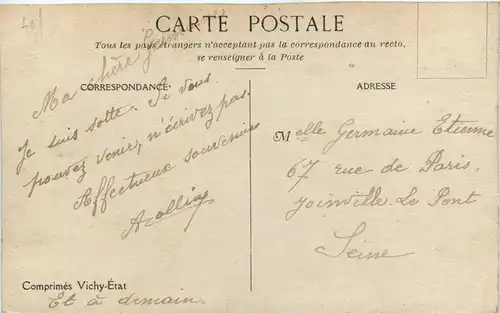 CARTE POSTALE
Tous les pays étrangers n'acceptant pas la correspondance au recto,
se renseigner à la Poste
CORRESPONDANCE
Ma chère Germaine
Je suis sotte. Si vous
pouvez venir, n'écrivez pas.
Affectueux souvenirs
Comprimés Vichy-État
Et à demain.
ADRESSE
Melle Germaine Etienne
67 rue de Paris.
Joinville Le Pont
Seine